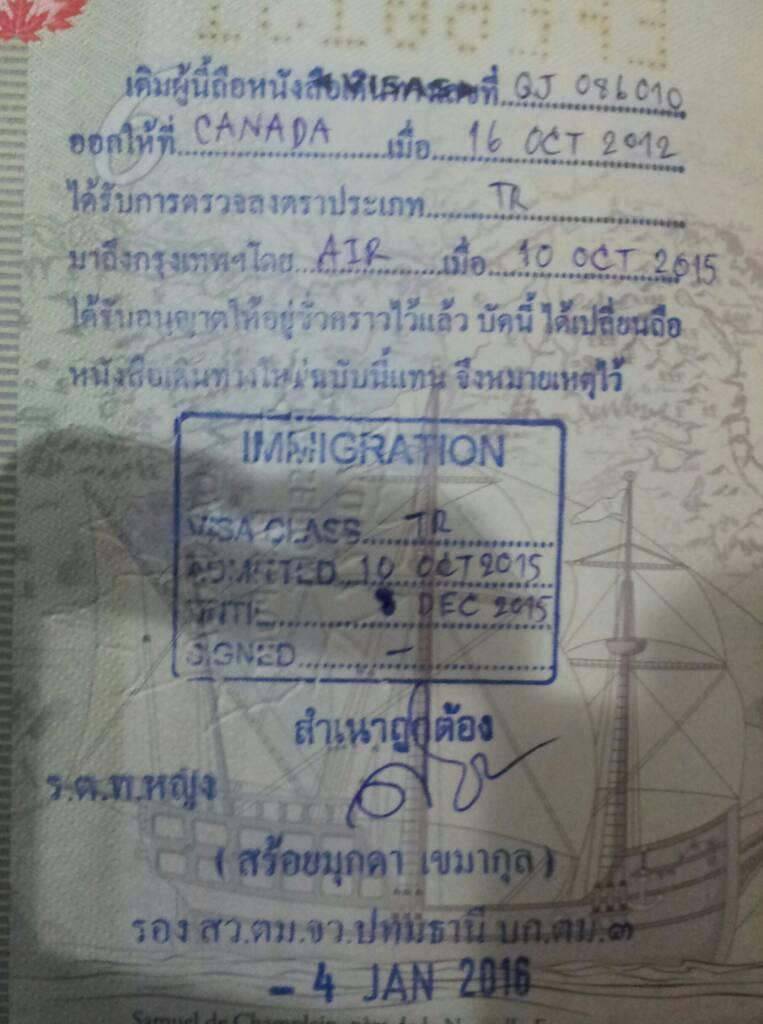 เดิมผู้นี้ถือหนังสือเดินทางเลขที่ QJ 086010
ออกให้ที่ CANADA เมื่อ 16 OCT 2012
ได้รับการตรวจลงตราประเภท TR
มาถึงกรุงเทพฯโดย AIR เมื่อ 10 OCT 2015
ได้รับอนุญาตให้อยู่ชั่วคราวไว้แล้ว บัดนี้ ได้เปลี่ยนถือ
หนังสือเดินทางใหม่ฉบับนี้แทน จึงหมายเหตุไว้
IMMIGRATION
VISA CLASS TR
ADMITTED 10 OCT 2015
UNTIL 8 DEC 2015
SIGNED –
สำเนาถูกต้อง
ร.ต.ท.หญิง
( สร้อยมุกดา เขมากุล )
รอง สว.ตม.จว.ปทุมธานี บก.ตม.๓
- 4 JAN 2016
Samuel de Champlain, père de la Nouvelle